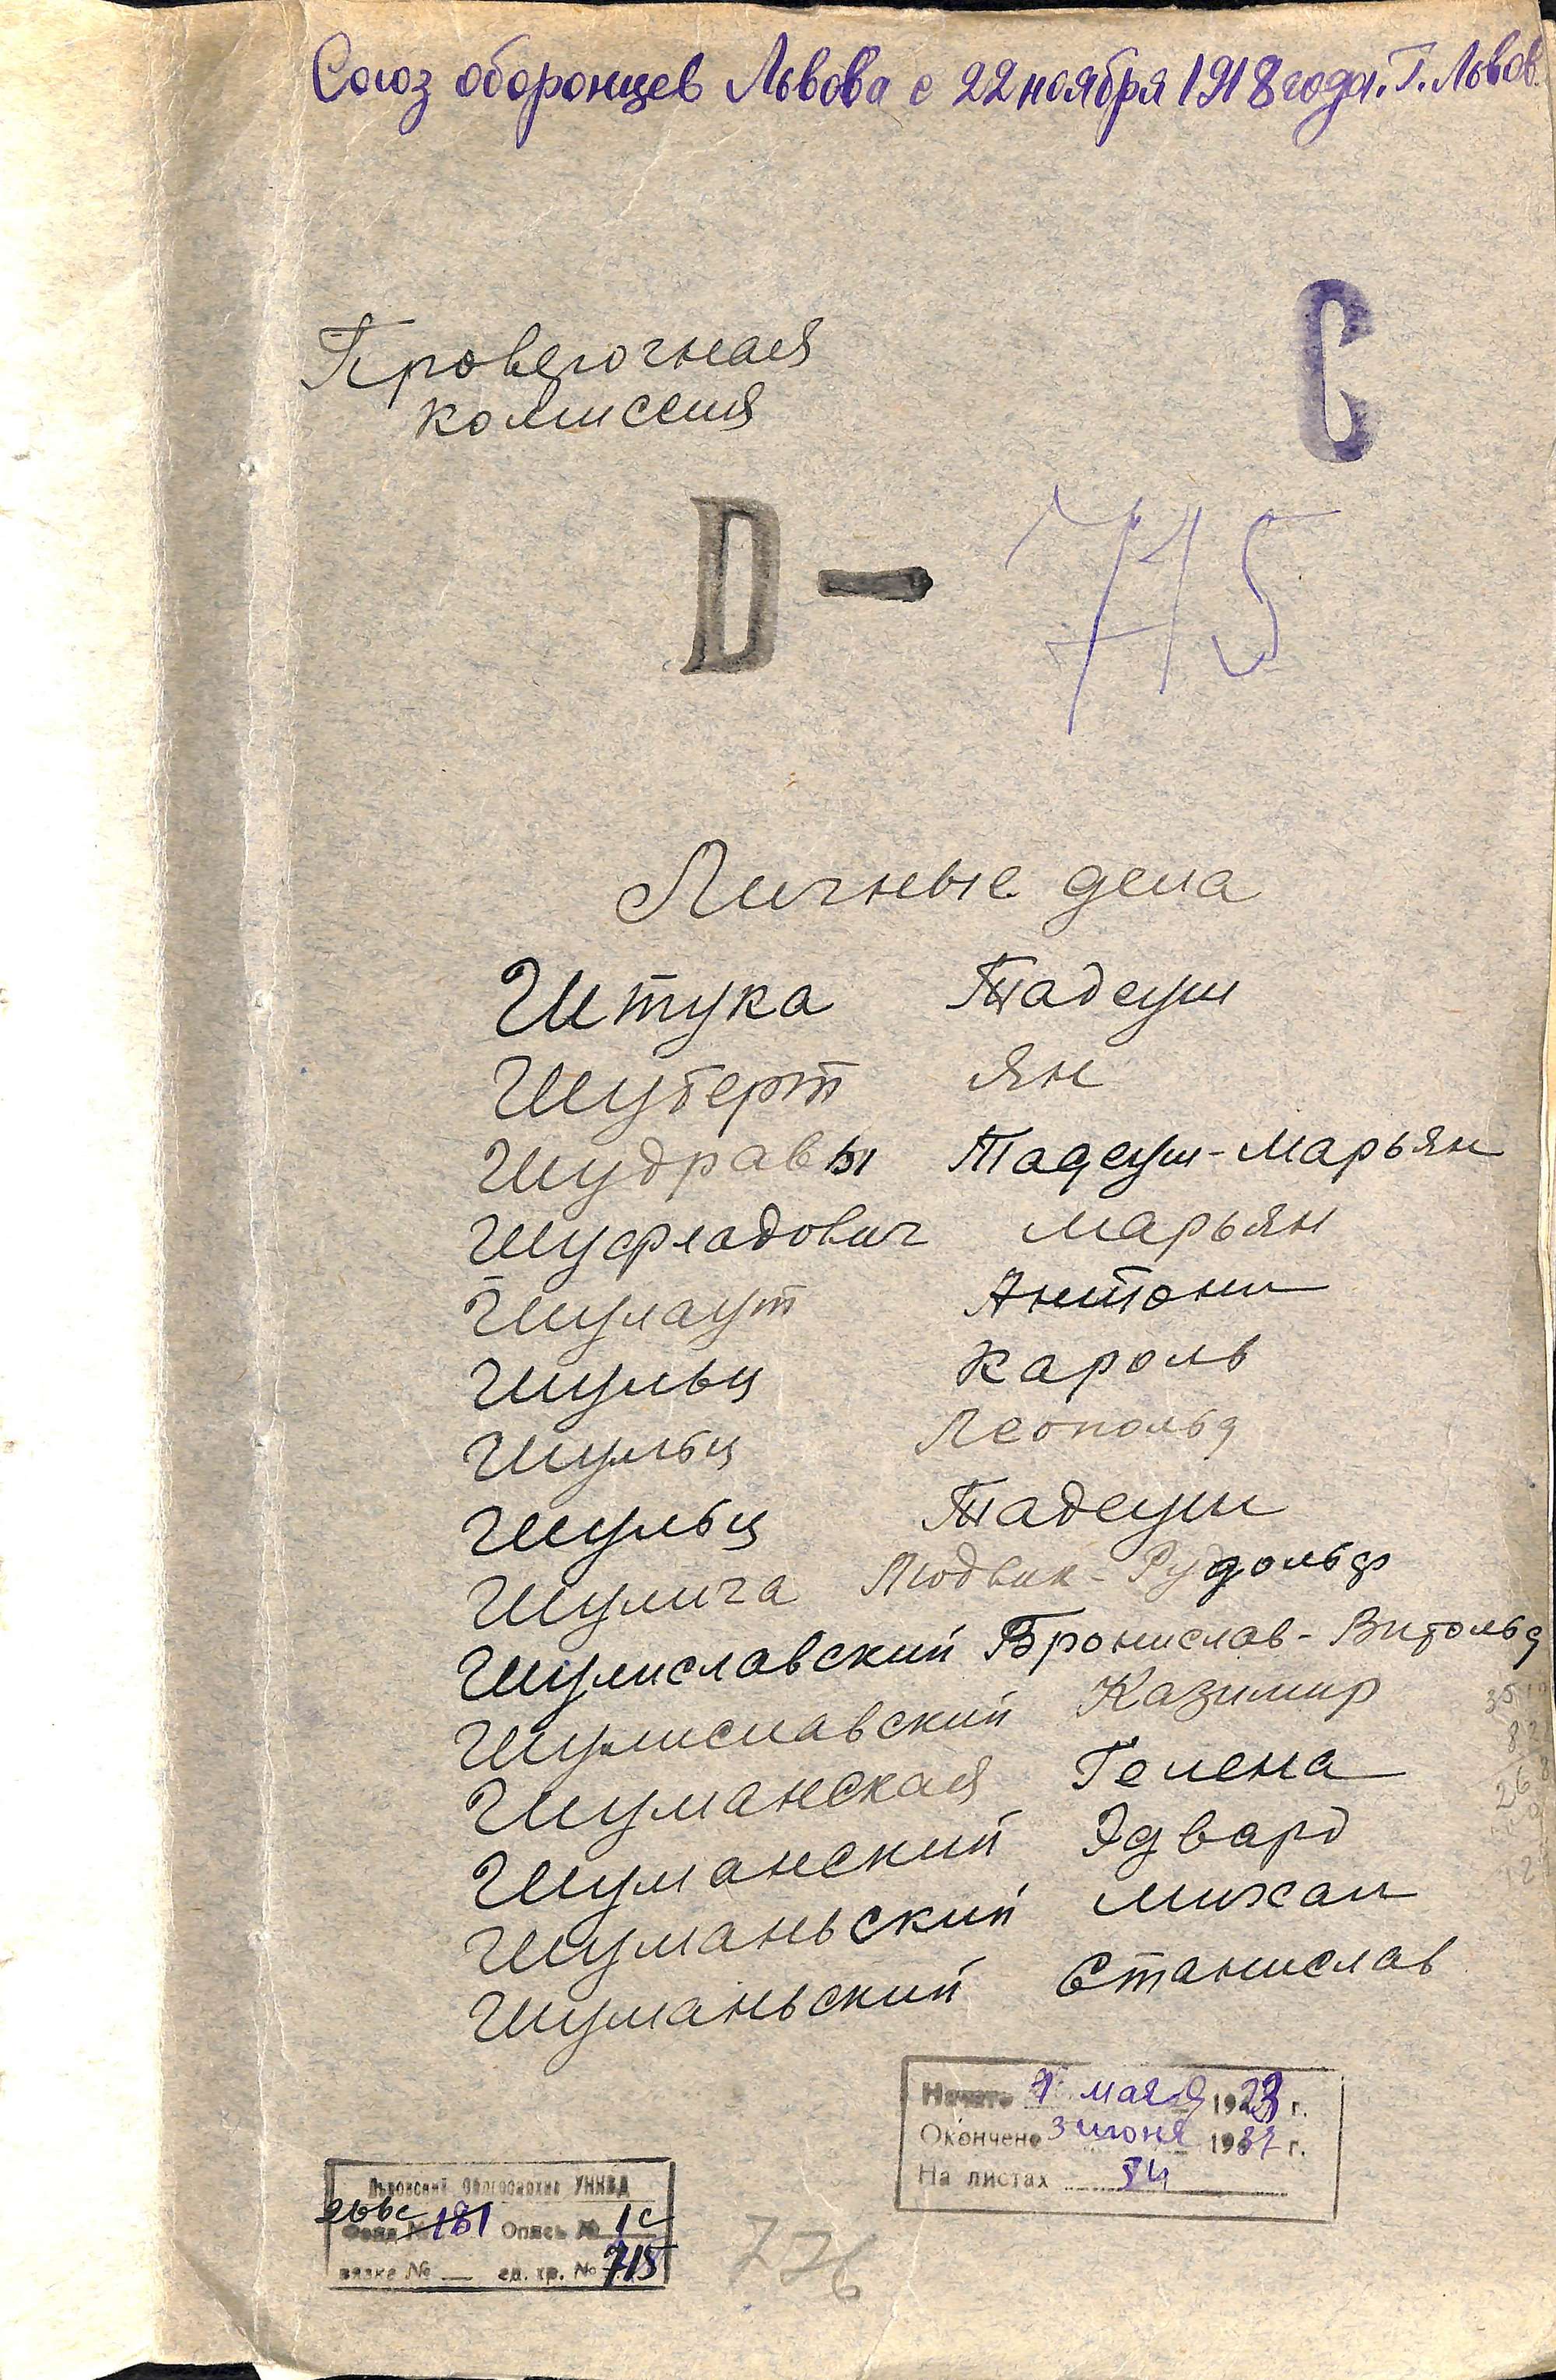 Союз оборонцев Львова с 22 ноября 1918 года. Г. Львов.
С
Проверочная
комиссия
D - 715
Личные дела
Штука Тадеуш
Шуберт Ян
Шудравы Тадеуш-Марьян
Шуфладович Марьян
Шулаут Антони
Шульц Кароль
Шульц Леопольд
Шульц Тадеуш
Шулича Людвик-Рудольф
Шулиславский Бронислав-Витольд
Шулиславский Казимир
Шуманская Гелена
Шуманский Эдвард
Шуманьский Михал
Шуманьский Станислав
Начато мая 192 г.
Окончено 3 июня 1937 г.
На листах 54
Львовский Облгосархив УНКВД
Фонд № 181 Опись № 1с
вязка № — ед. хр. № 715
776